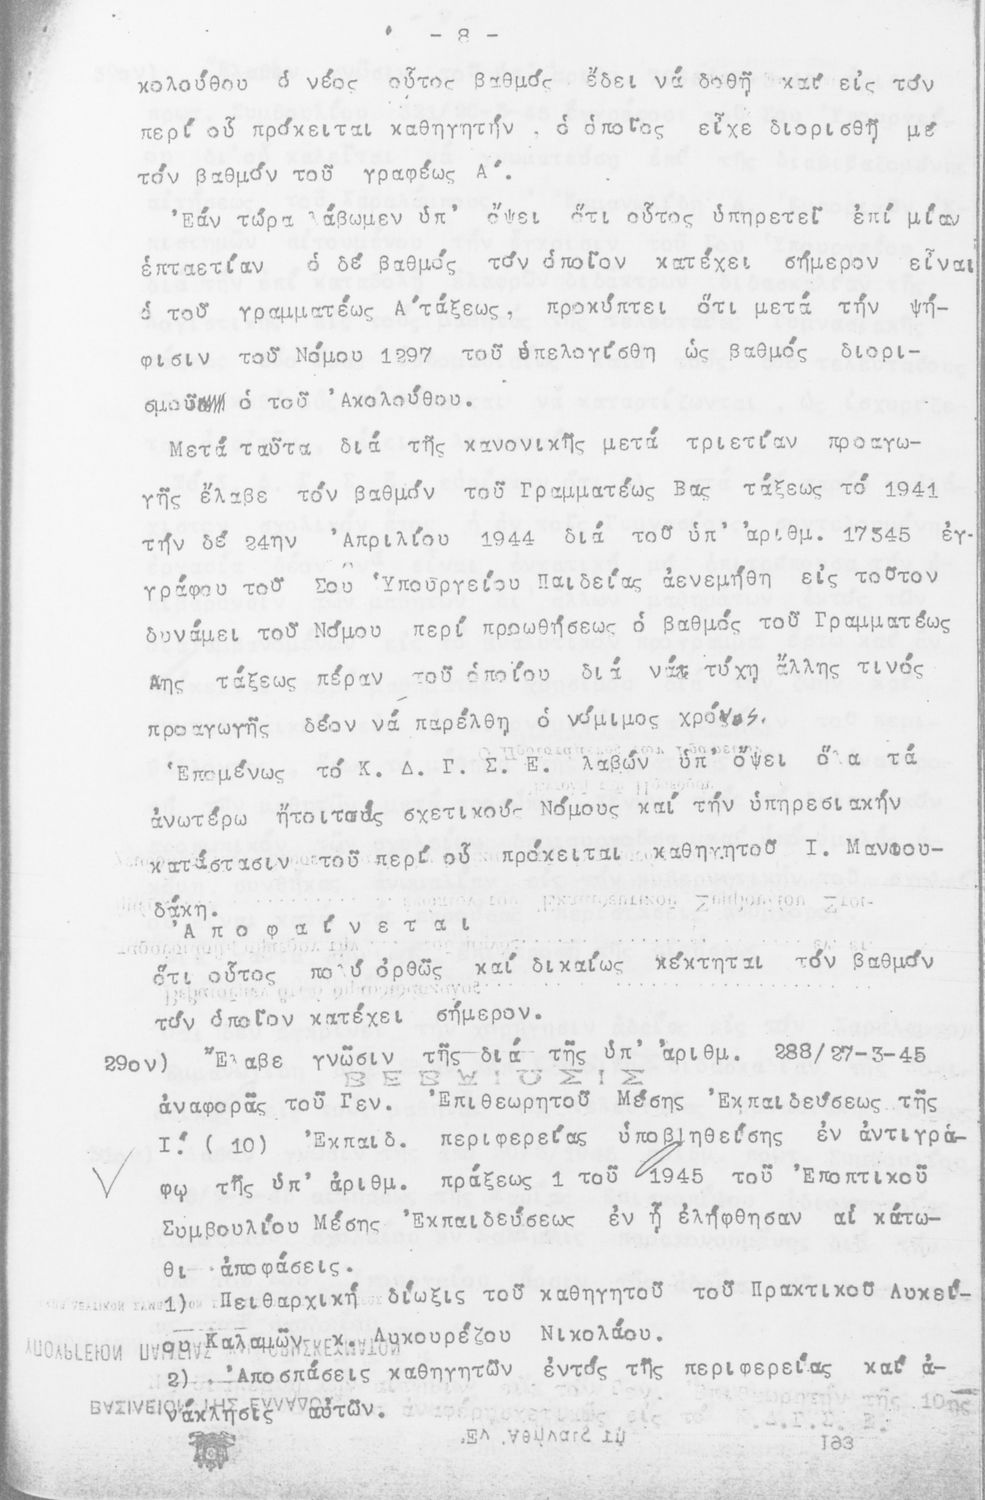 - 8 -
κολούθου ὁ νέος οὗτος βαθμός ἔδει νά δοθῇ καί εἰς τόν
περί οὗ πρόκειται καθηγητήν , ὁ ὁποῖος εἶχε διορισθῆ μέ
τόν βαθμόν τοῦ γραφέως Α΄.
Ἐάν τώρα λάβωμεν ὑπ' ὄψει ὅτι οὗτος ὑπηρετεῖ ἐπί μίαν
ἑπταετίαν ὁ δέ βαθμός τόν ὁποῖον κατέχει σήμερον εἶναι
ὁ τοῦ γραμματέως Α΄τάξεως, προκύπτει ὅτι μετά τήν ψή-
φισιν τοῦ Νόμου 1297 τοῦ ὑπελογίσθη ὡς βαθμός διορι-
σμοῦ ὁ τοῦ Ἀκολούθου.
Μετά ταῦτα διά τῆς κανονικῆς μετά τριετίαν προαγω-
γῆς ἔλαβε τόν βαθμόν τοῦ Γραμματέως Βας τάξεως τό 1941
τήν δέ 24ην Ἀπριλίου 1944 διά τοῦ ὑπ' ἀριθμ. 17345 ἐγ-
γράφου τοῦ Σοῦ Ὑπουργείου Παιδείας ἀενεμήθη εἰς τοῦτον
δυνάμει τοῦ Νόμου περί προωθήσεως ὁ βαθμός τοῦ Γραμματέως
Αης τάξεως πέραν τοῦ ὁποίου διά νά τύχῃ ἄλλης τινός
προαγωγῆς δέον νά παρέλθῃ ὁ νόμιμος χρόνος.
Ἑπομένως τό Κ. Δ. Γ. Σ. Ε. λαβών ὑπ' ὄψει ὅλα τά
ἀνωτέρω ἤτοι τούς σχετικούς Νόμους καί τήν ὑπηρεσιακήν
κατάστασιν τοῦ περί οὗ πρόκειται καθηγητοῦ Ι. Μανφου-
δάκη.
Ἀ π ο φ α ί ν ε τ α ι
ὅτι οὗτος πολύ ὀρθῶς καί δικαίως κέκτηται τόν βαθμόν
τόν ὁποῖον κατέχει σήμερον.
29ον) Ἔλαβε γνῶσιν τῆς διά τῆς ὑπ' ἀριθμ. 288/27-3-45
ἀναφορᾶς τοῦ Γεν. Ἐπιθεωρητοῦ Μέσης Ἐκπαιδεύσεως τῆς
Ι΄. ( 10) Ἐκπαιδ. περιφερείας ὑποβληθείσης ἐν ἀντιγρά-
φῳ τῆς ὑπ' ἀριθμ. πράξεως 1 τοῦ 1945 τοῦ Ἐποπτικοῦ
Συμβουλίου Μέσης Ἐκπαιδεύσεως ἐν ᾗ ἐλήφθησαν αἱ κάτω-
θι ἀποφάσεις.
1) Πειθαρχική δίωξις τοῦ καθηγητοῦ τοῦ Πρακτικοῦ Λυκεί-
ου Καλαμῶν κ. Λυκουρέζου Νικολάου.
2) Ἀποσπάσεις καθηγητῶν ἐντός τῆς περιφερείας καί ἀ-
νάκλησις αὐτῶν.